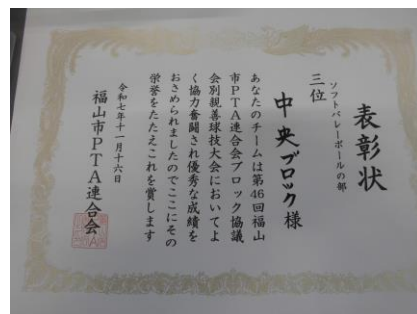 表彰状
ソフトバレーボールの部
三位
中央ブロック様
あなたのチームは第46回福山
市PTA連合会ブロック協議
会別親善球技大会においてよ
く協力奮闘され優秀な成績を
おさめられましたのでここにその
栄誉をたたえこれを賞します
令和七年十一月十六日
福山市PTA連合会